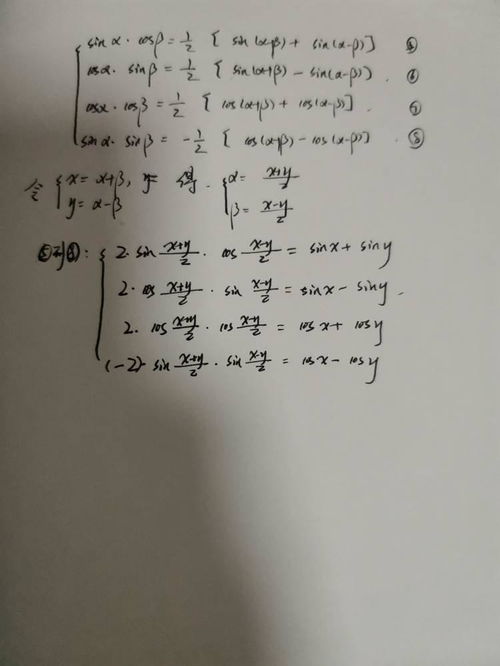 sin α · cos β = 1/2 [ sin(α+β) + sin(α-β) ] ⑤
cos α · sin β = 1/2 [ sin(α+β) - sin(α-β) ] . ⑥
cos α · cos β = 1/2 [ cos(α+β) + cos(α-β) ] . ⑦
sin α · sin β = - 1/2 [ cos(α+β) - cos(α-β) ] . ⑧
令 { x = α+β, y = α-β 得 { α = (x+y)/2 β = (x-y)/2
2 · sin (x+y)/2 · cos (x-y)/2 = sin x + sin y
2 · cos (x+y)/2 · sin (x-y)/2 = sin x - sin y .
2 · cos (x+y)/2 · cos (x-y)/2 = cos x + cos y
(-2) · sin (x+y)/2 · sin (x-y)/2 = cos x - cos y